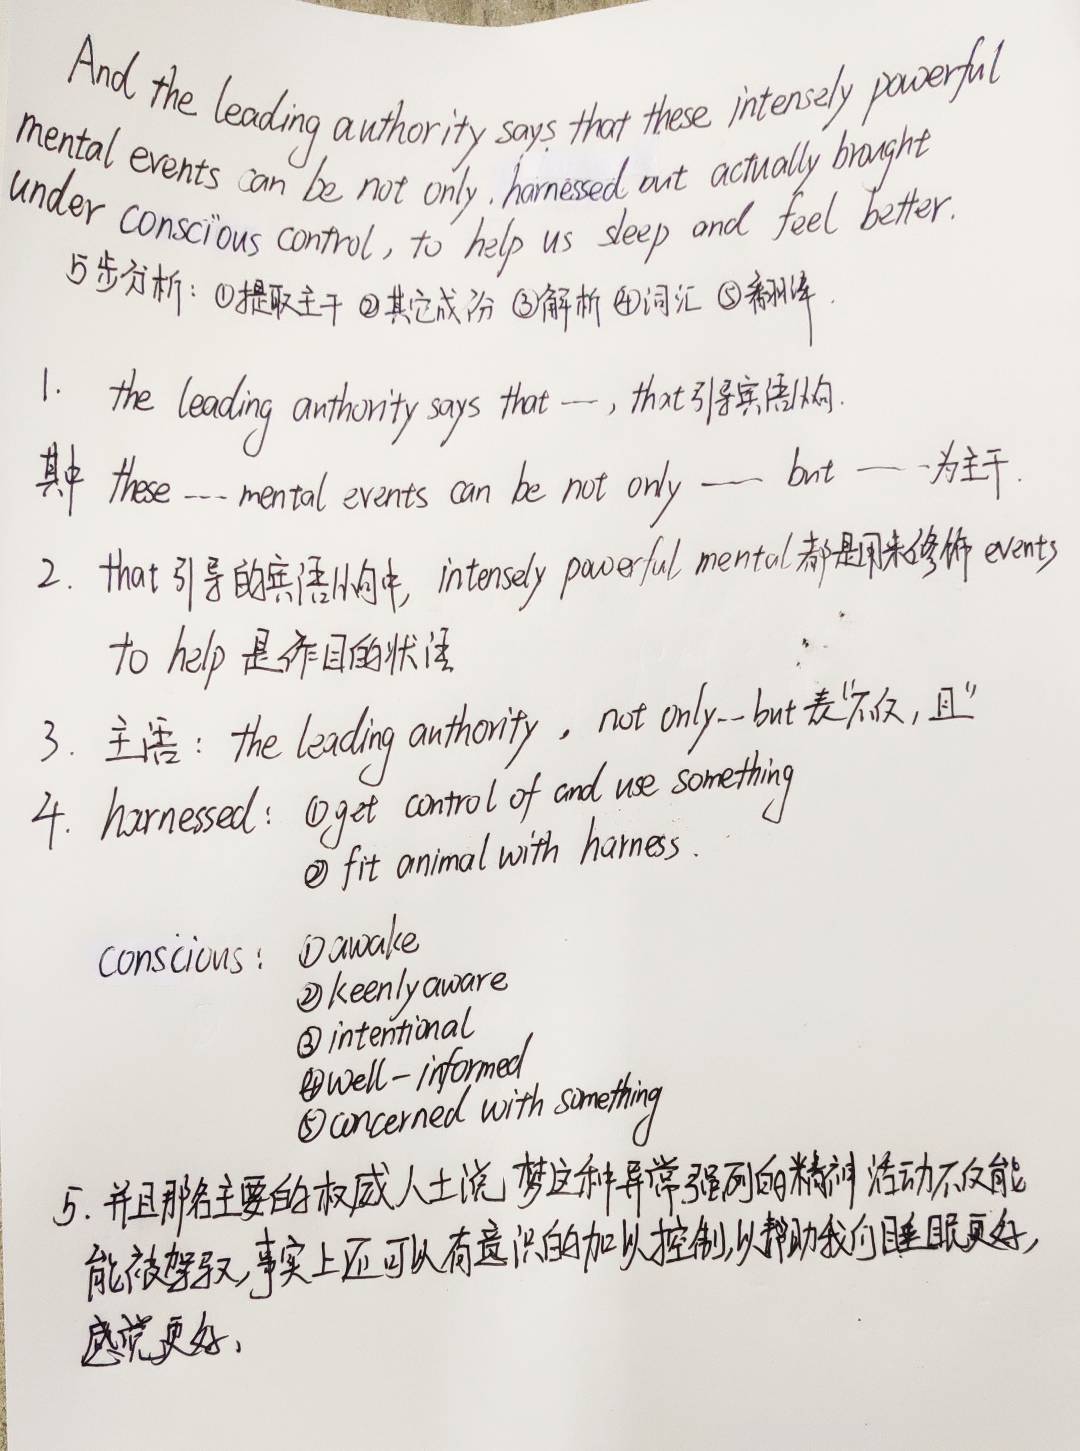 And the leading authority says that these intensely powerful
mental events can be not only harnessed but actually brought
under conscious control, to help us sleep and feel better.
5步分析: ①提取主干 ②其它成份 ③解析 ④词汇 ⑤翻译.
1. the leading authority says that —, that引导宾语从句.
其中 these --- mental events can be not only —— but —— 为主干.
2. that 引导的宾语从句中, intensely powerful mental 都是用来修饰 events
to help 是作目的状语
3. 主语: the leading authority, not only--but 表"不仅,且"
4. harnessed: ①get control of and use something
② fit animal with harness.
conscious: ①awake
②keenly aware
③intentional
④well-informed
⑤concerned with something
5. 并且那名主要的权威人士说 梦这种异常强烈的精神活动不仅能
能被驾驭,事实上还可以有意识的加以控制,以帮助我们睡眠更好,
感觉更好、